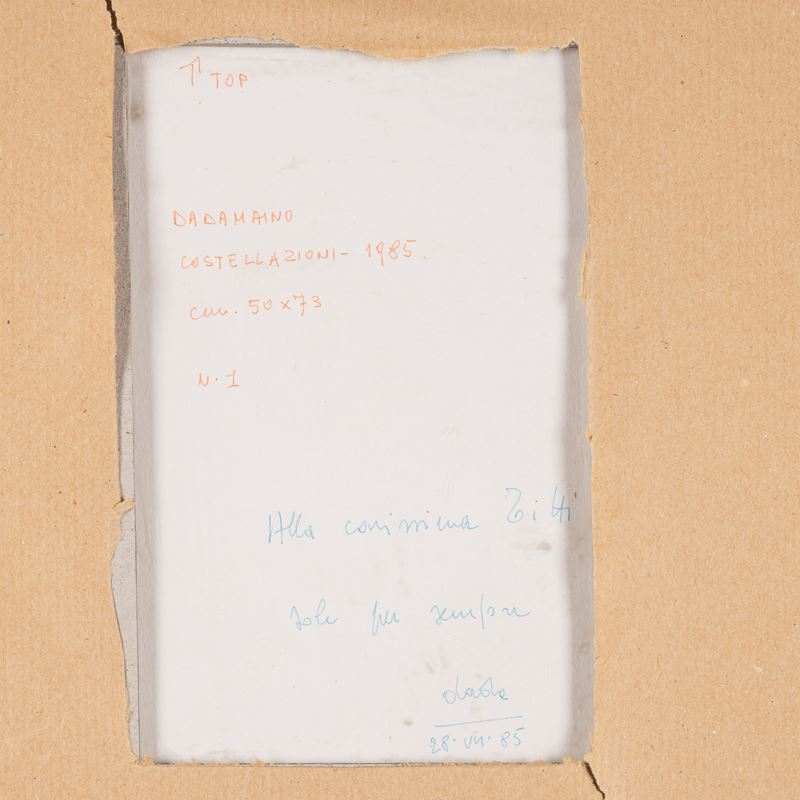 ↑ TOP
DADAMAINO
COSTELLAZIONI - 1985.
cm. 50 x 73
N. 1
Alla carissima Titti
solo per sempre
dada
28. VII. 85